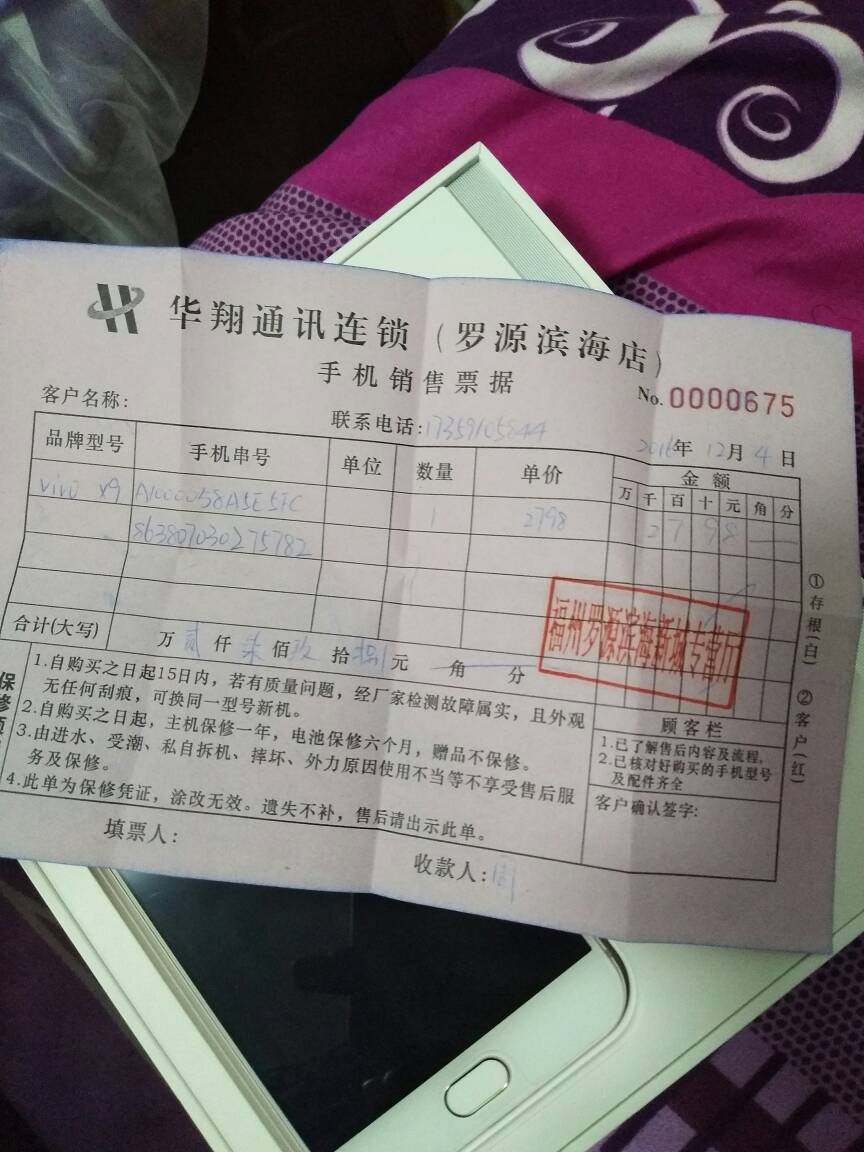 华翔通讯连锁（罗源滨海店）
手机销售票据
No.0000675
客户名称：
联系电话：17359105844
2016年12月4日
品牌型号 手机串号 单位 数量 单价 金额
万 千 百 十 元 角 分
vivo x9 A1000058A5E5FC 1 2798 2 7 9 8
863807030275782
合计(大写) 万 贰 仟 柒 佰 玖 拾 捌 元 角 分
福州罗源滨海新城专营厅
①存根(白) ②客户(红)
1.自购买之日起15日内，若有质量问题，经厂家检测故障属实，且外观
无任何刮痕，可换同一型号新机。
2.自购买之日起，主机保修一年，电池保修六个月，赠品不保修。
3.由进水、受潮、私自拆机、摔坏、外力原因使用不当等不享受售后服
务及保修。
4.此单为保修凭证，涂改无效。遗失不补，售后请出示此单。
顾客栏
1.已了解售后内容及流程，
2.已核对好购买的手机型号
及配件齐全
客户确认签字：
填票人：
收款人：周